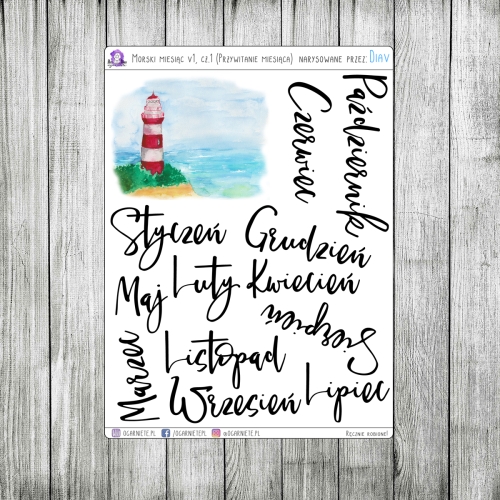 Morski miesiąc v1, cz.1 (Przywitanie miesiąca) narysowane przez: Diav
Październik
Czerwiec
Styczeń
Grudzień
Maj
Luty
Kwiecień
Sierpień
Marzec
Listopad
Wrzesień
Lipiec
ogarniete.pl
/ogarnietepl
@ogarniete.pl
Ręcznie robione!